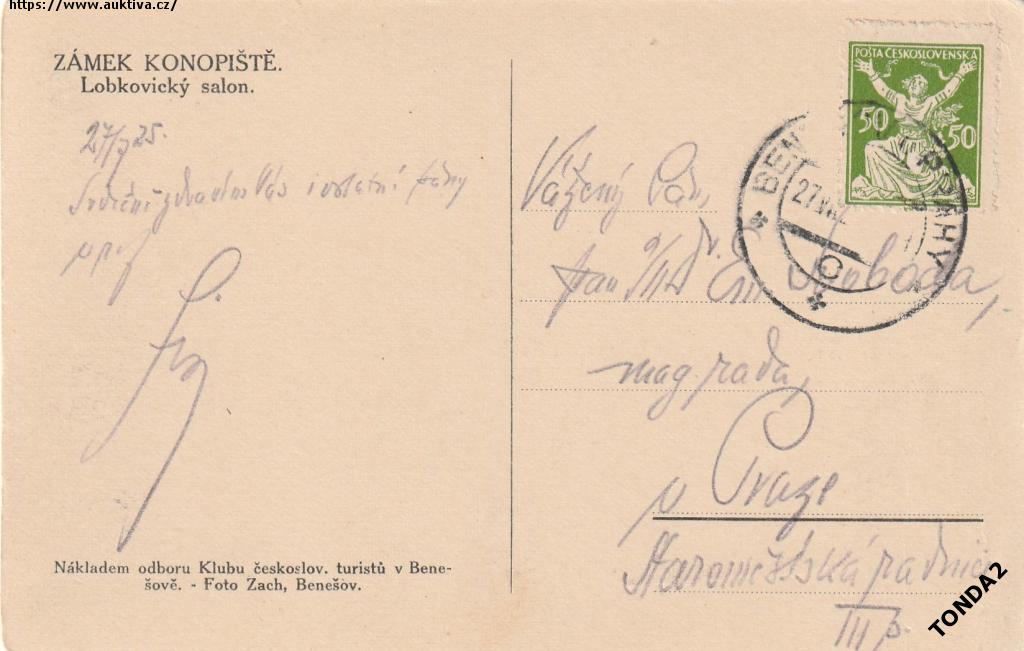 https://www.auktiva.cz/
ZÁMEK KONOPIŠTĚ.
Lobkovický salon.
27/7 25.
Srdečně zdravím Vás i ostatní
Nákladem odboru Klubu českoslov. turistů v Bene-
šově. - Foto Zach, Benešov.
POŠTA ČESKOSLOVENSKÁ
50 50
BEN PRAHY
27.VII.2
C
Vážený Pán,
pan Dr. Em Svoboda,
mag. rada,
v Praze
Staroměstská radnice
III p.
TONDA2